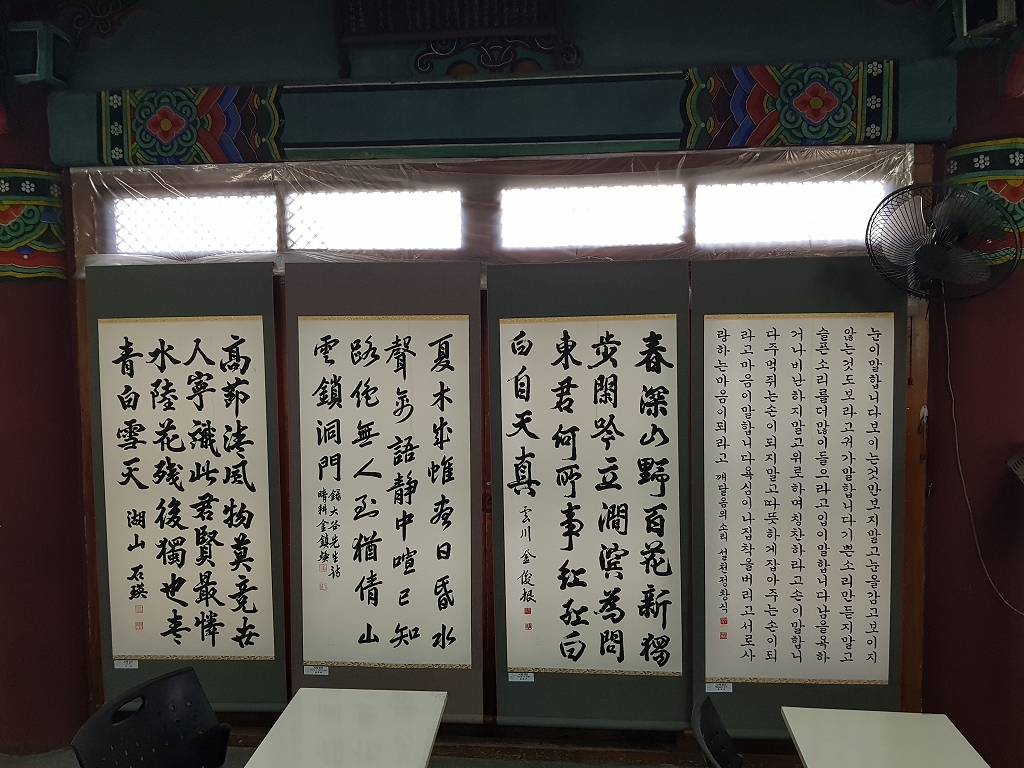 눈이말합니다보이는것만보지말고눈을감고보이지
않는것도보라고귀가말합니다기쁜소리만듣지말고
슬픈소리를더많이들으라고입이말합니다남을욕하
거나비난하지말고위로하며칭찬하라고손이말합니
다주먹쥐는손이되지말고따뜻하게잡아주는손이되
라고마음이말합니다욕심이나집착을버리고서로사
랑하는마음이되라고 깨달음의소리 설천정창식
春深山野百花新獨
步閑吟立澗濱為問
東君何所事紅紅白
白自天真 雲川 金俊根
夏木成帷晝日昏水
聲禽語靜中喧已知
路絶無人到猶倩山
雲鎖洞門 錄大谷先生詩
晴耕金鎭
高節淸風物莫競世
人寧識此君賢最憐
水陸花殘後獨也靑
靑白雪天 湖山 石瑛